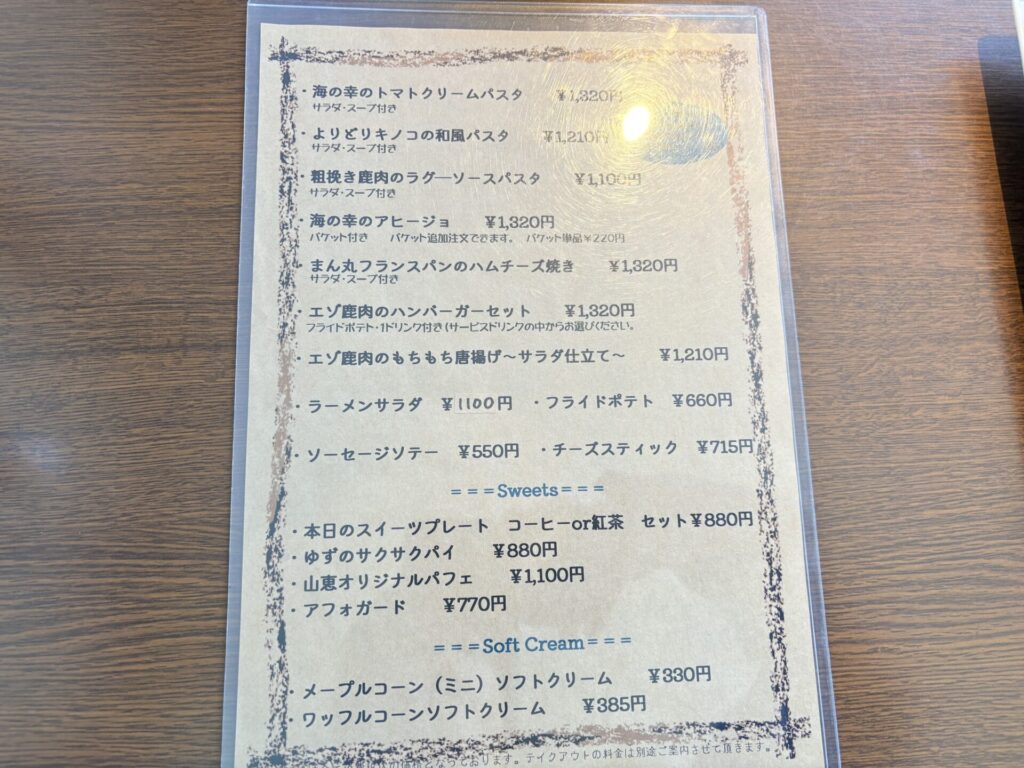 ・海の幸のトマトクリームパスタ ￥1,320円
サラダ・スープ付き
・よりどりキノコの和風パスタ ￥1,210円
サラダ・スープ付き
・粗挽き鹿肉のラグーソースパスタ ￥1,100円
サラダ・スープ付き
・海の幸のアヒージョ ￥1,320円
バケット付き バケット追加注文できます。 バケット単品￥220円
・まん丸フランスパンのハムチーズ焼き ￥1,320円
サラダ・スープ付き
・エゾ鹿肉のハンバーガーセット ￥1,320円
フライドポテト・1ドリンク付き(サービスドリンクの中からお選びください。
・エゾ鹿肉のもちもち唐揚げ～サラダ仕立て～ ￥1,210円
・ラーメンサラダ ￥1100円 ・フライドポテト ￥660円
・ソーセージソテー ￥550円 ・チーズスティック ￥715円
===Sweets===
・本日のスイーツプレート コーヒーor紅茶 セット￥880円
・ゆずのサクサクパイ ￥880円
・山恵オリジナルパフェ ￥1,100円
・アフォガード ￥770円
===Soft Cream===
・メープルコーン（ミニ）ソフトクリーム ￥330円
・ワッフルコーンソフトクリーム ￥385円
となっております。テイクアウトの料金は別途ご案内させて頂きます。